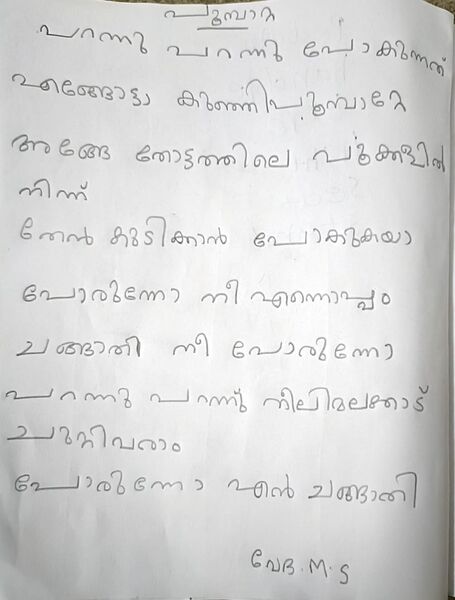 പൂമ്പാറ്റ
പറന്നു പറന്നു പോകുന്നത്
എങ്ങോട്ടാ കുഞ്ഞിപൂമ്പാറ്റേ
അങ്ങേ തോട്ടത്തിലെ പൂക്കളിൽ
നിന്ന്
തേൻ കുടിക്കാൻ പോകുകയാ
പോരുന്നോ നീ എന്നൊപ്പം
ചങ്ങാതി നീ പോരുന്നോ
പറന്നു പറന്നു നീലിമലക്കാട്
ചുറ്റിവരാം
പോരുന്നോ എൻ ചങ്ങാതി
വേദ. M. S